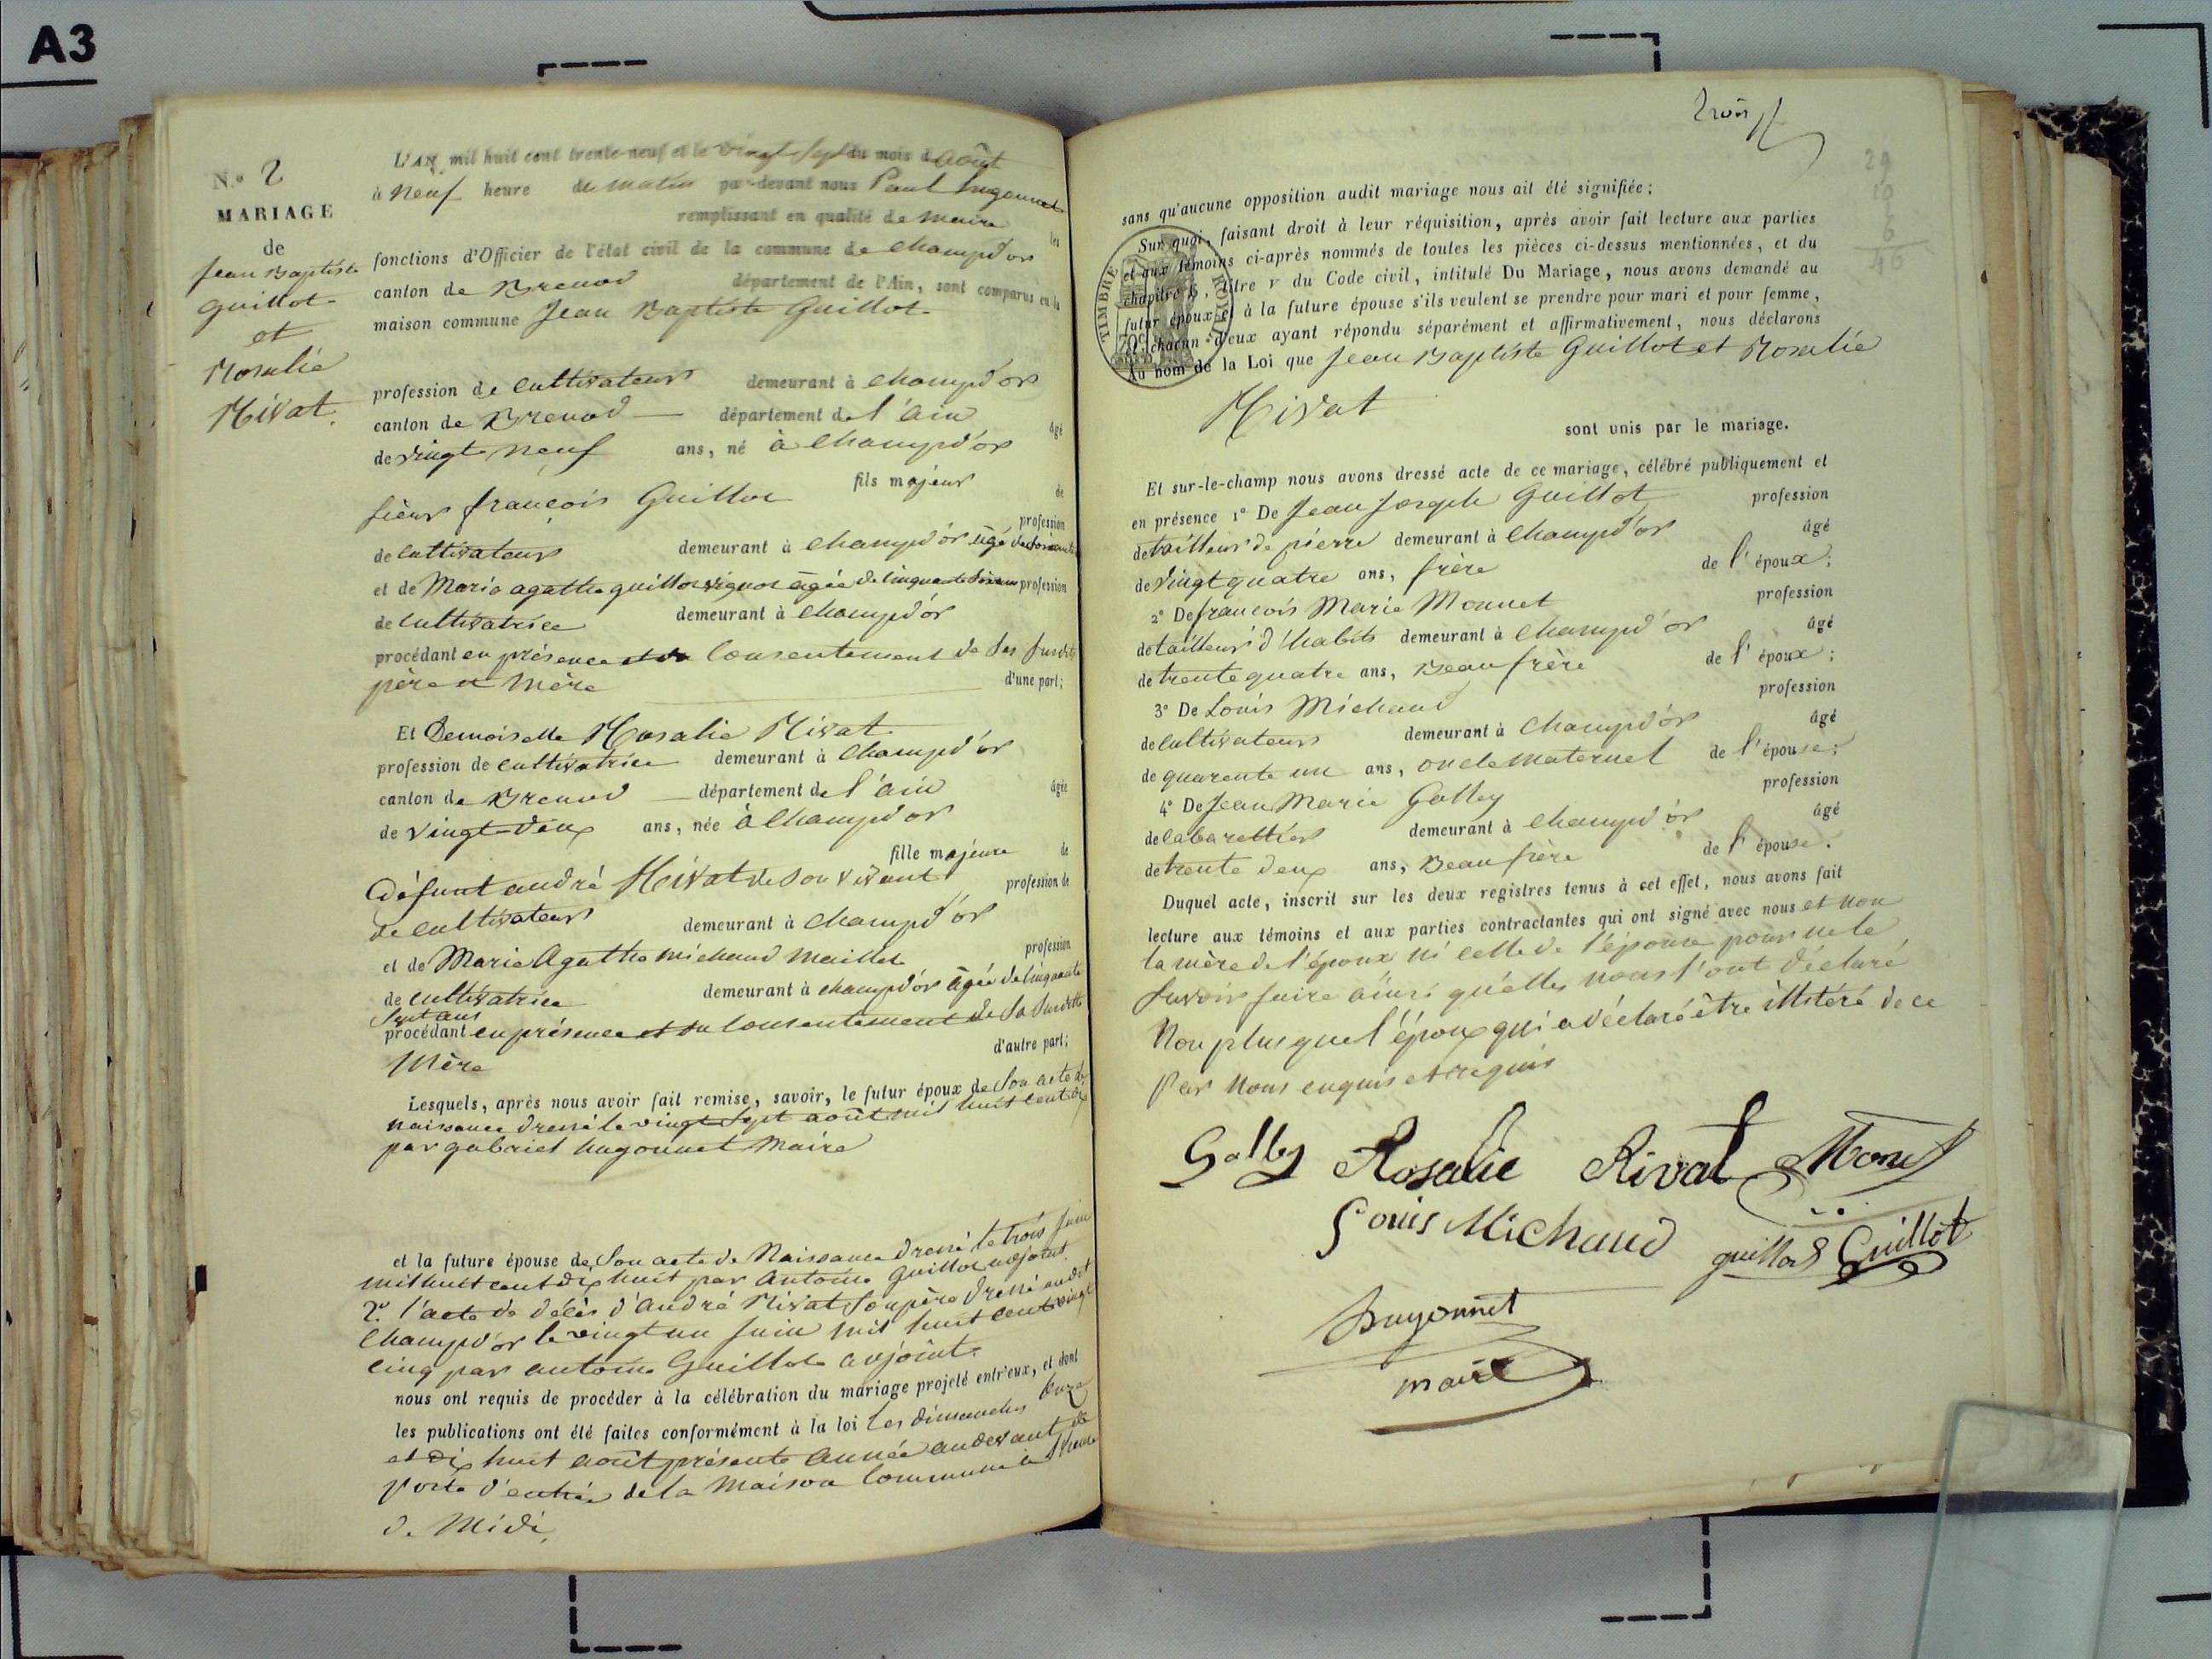 A3
N.° 2
MARIAGE
de
Jean Baptiste
Guillot
et
Rosalie
Rivat.
L'AN mil huit cent trente-neuf et le vingt sept du mois d août
à neuf heure du matin par-devant nous Paul hugonnet
remplissant en qualité de maire les
fonctions d'Officier de l'état civil de la commune de Champd'or
canton de Brenod département de l'Ain, sont comparus en la
maison commune Jean Baptiste Guillot
profession de cultivateur demeurant à Champd'or
canton de Brenod département de l'ain
de vingt neuf ans, né à Champd'or âgé
fils majeur de
sieur françois Guillot profession
de cultivateur demeurant à Champd'or âgé de
et de Marie agathe guillot âgée de profession
de cultivatrice demeurant à Champd'or
procédant en présence et du consentement de ses susdits
père et mère d'une part;
Et Demoiselle Rosalie Rivat
profession de cultivatrice demeurant à Champd'or
canton de Brenod département de l'ain
de vingt-deux ans, née à Champd'or âgée
fille majeure de
Défunt andré Rivat de son vivant profession de
de cultivateur demeurant à Champd'or
et de Marie Agathe michaud maillet profession
de cultivatrice demeurant à champd'or âgée de cinquante
sept ans
procédant en présence et du consentement de sa susdite
Mère d'autre part;
Lesquels, après nous avoir fait remise, savoir, le futur époux de son acte de
naissance dressé le vingt sept août mil huit cent dix
par gabriel hugonnet maire
et la future épouse de Son acte de Naissance dressé le trois juin
mil huit cent dix huit par Antoine Guillot adjoint.
2° l'acte de décès d'André Rivat son père dressé audit
Champd'or le vingt un juin mil huit cent vingt
cinq par antoine Guillot adjoint.
nous ont requis de procéder à la célébration du mariage projeté entr'eux, et dont
les publications ont été faites conformément à la loi les dimanches onze
et dix huit août présente année au devant de
porte d'entrée de la maison Commune à l'heure
de Midi.
trois
29
10
6
sans qu'aucune opposition audit mariage nous ait été signifiée;
Sur quoi, faisant droit à leur réquisition, après avoir fait lecture aux parties
et aux témoins ci-après nommés de toutes les pièces ci-dessus mentionnées, et du
chapitre 6, titre v du Code civil, intitulé Du Mariage, nous avons demandé au
futur époux et à la future épouse s'ils veulent se prendre pour mari et pour femme,
et chacun d'eux ayant répondu séparément et affirmativement, nous déclarons
Au nom de la Loi que Jean Baptiste Guillot et Rosalie
Rivat
sont unis par le mariage.
TIMBRE ROYAL
Et sur-le-champ nous avons dressé acte de ce mariage, célébré publiquement et
en présence 1° De Jean Joseph Guillot profession
de tailleur de pierre demeurant à Champd'or âgé
de vingt quatre ans, frère de l'époux;
2° De françois Marie Monnet profession
de tailleur d'habits demeurant à Champd'or âgé
de trente quatre ans, Beau frère de l'époux;
3° De Louis Michaud profession
de cultivateur demeurant à Champd'or âgé
de quarente un ans, oncle maternel de l'épouse;
4° De Jean Marie Golley profession
de cabarettier demeurant à Champd'or âgé
de trente deux ans, Beau frère de l'épouse.
Duquel acte, inscrit sur les deux registres tenus à cet effet, nous avons fait
lecture aux témoins et aux parties contractantes qui ont signé avec nous et non
la mère de l'époux ni celle de l'épouse pour ne le
savoir faire ainsi qu'elles nous l'ont déclaré
Non plus que l'époux qui a déclaré être illitéré de ce
par Nous enquis et requis
Golley Rosalie Rivat Monet
Louis Michaud guillot Guillot
hugonnet
maire